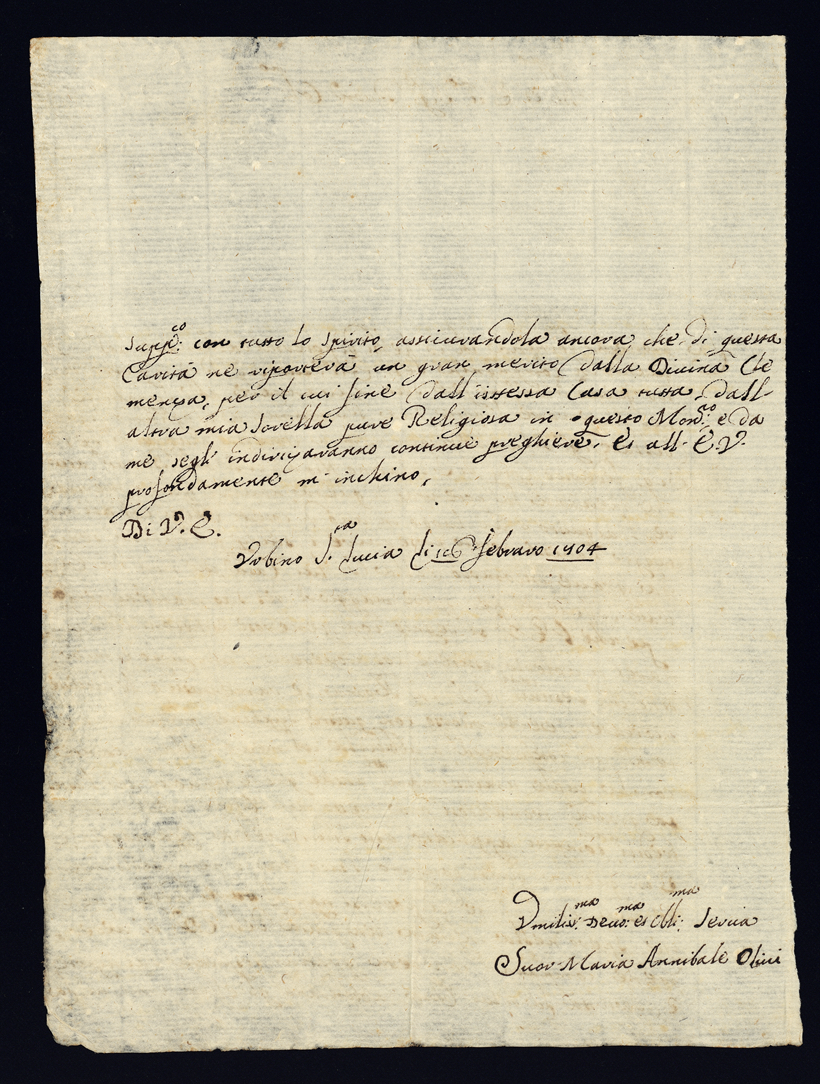 suppco: con tutto lo spirito, assicurandola ancora, che di questa
Carità ne riporterà un gran merito dalla Divina Cle
menza, per il cui fine dall'istessa Casa tutta, dall'
altra mia sorella pure Religiosa in questo Monro: e da
me segl' indirizaranno continue preghiere. Et all' E.V.
profondamente m' inchino.
Di V. E.
Urbino S.ta Lucia li 16 febraro 1704
Umilis:ma Devo:ma et Obli:ma Serva
Suor Maria Annibale Olivi